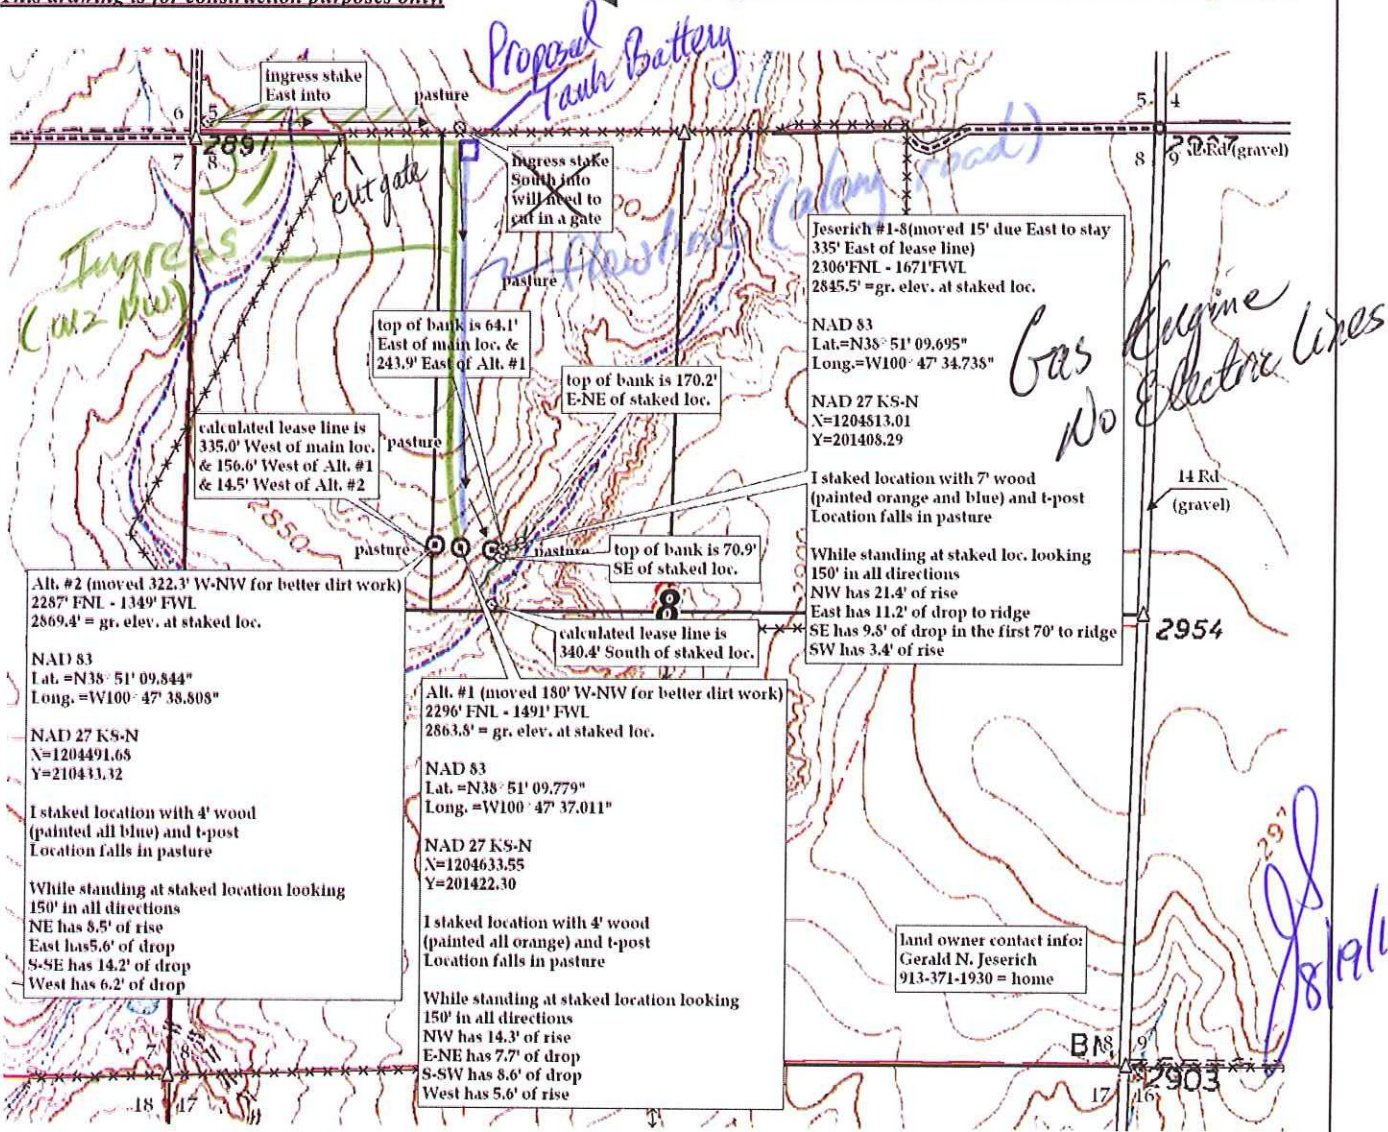 This drawing is for construction purposes only.
Proposed
Tank Battery
ingress stake
East into
pasture
6
5
5
4
2891
2937
7
8
8
9
Rd (gravel)
cut gate
ingress stake
South into
will need to
cut in a gate
flowlines (along road)
Ingress
(W2 NW)
pasture
Jeserich #1-8(moved 15' due East to stay
335' East of lease line)
2306'FNL - 1671'FWL
2845.5' =gr. elev. at staked loc.
NAD 83
Lat.=N38° 51' 09.695"
Long.=W100° 47' 34.735"
NAD 27 KS-N
X=1204813.01
Y=201408.29
I staked location with 7' wood
(painted orange and blue) and t-post
Location falls in pasture
While standing at staked loc. looking
150' in all directions
NW has 21.4' of rise
East has 11.2' of drop to ridge
SE has 9.8' of drop in the first 70' to ridge
SW has 3.4' of rise
Gas Engine
No Electric Lines
top of bank is 64.1'
East of main loc. &
243.9' East of Alt. #1
top of bank is 170.2'
E-NE of staked loc.
calculated lease line is
335.0' West of main loc.
& 156.6' West of Alt. #1
& 14.5' West of Alt. #2
pasture
14 Rd
(gravel)
2850
pasture
pasture
top of bank is 70.9'
SE of staked loc.
8
2954
calculated lease line is
340.4' South of staked loc.
Alt. #2 (moved 322.3' W-NW for better dirt work)
2287' FNL - 1349' FWL
2869.4' = gr. elev. at staked loc.
NAD 83
Lat. =N38° 51' 09.844"
Long. =W100° 47' 38.808"
NAD 27 KS-N
X=1204491.68
Y=210433.32
I staked location with 4' wood
(painted all blue) and t-post
Location falls in pasture
While standing at staked location looking
150' in all directions
NE has 8.5' of rise
East has5.6' of drop
S-SE has 14.2' of drop
West has 6.2' of drop
Alt. #1 (moved 180' W-NW for better dirt work)
2296' FNL - 1491' FWL
2863.8' = gr. elev. at staked loc.
NAD 83
Lat. =N38° 51' 09.779"
Long. =W100° 47' 37.011"
NAD 27 KS-N
X=1204633.55
Y=201422.30
I staked location with 4' wood
(painted all orange) and t-post
Location falls in pasture
While standing at staked location looking
150' in all directions
NW has 14.3' of rise
E-NE has 7.7' of drop
S-SW has 8.6' of drop
West has 5.6' of rise
297
land owner contact info:
Gerald N. Jeserich
913-371-1930 = home
JS
8/19/1
7
8
BM
8
9
2903
18
17
17
16